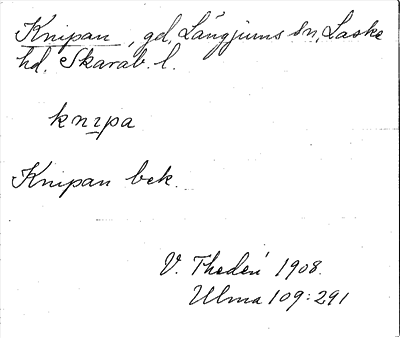 Knipan, gd, Långjums sn, Laske
hd. Skarab. l.
knɪpa
Knipan bek.
V. Thedén 1908.
Ulma 109:291